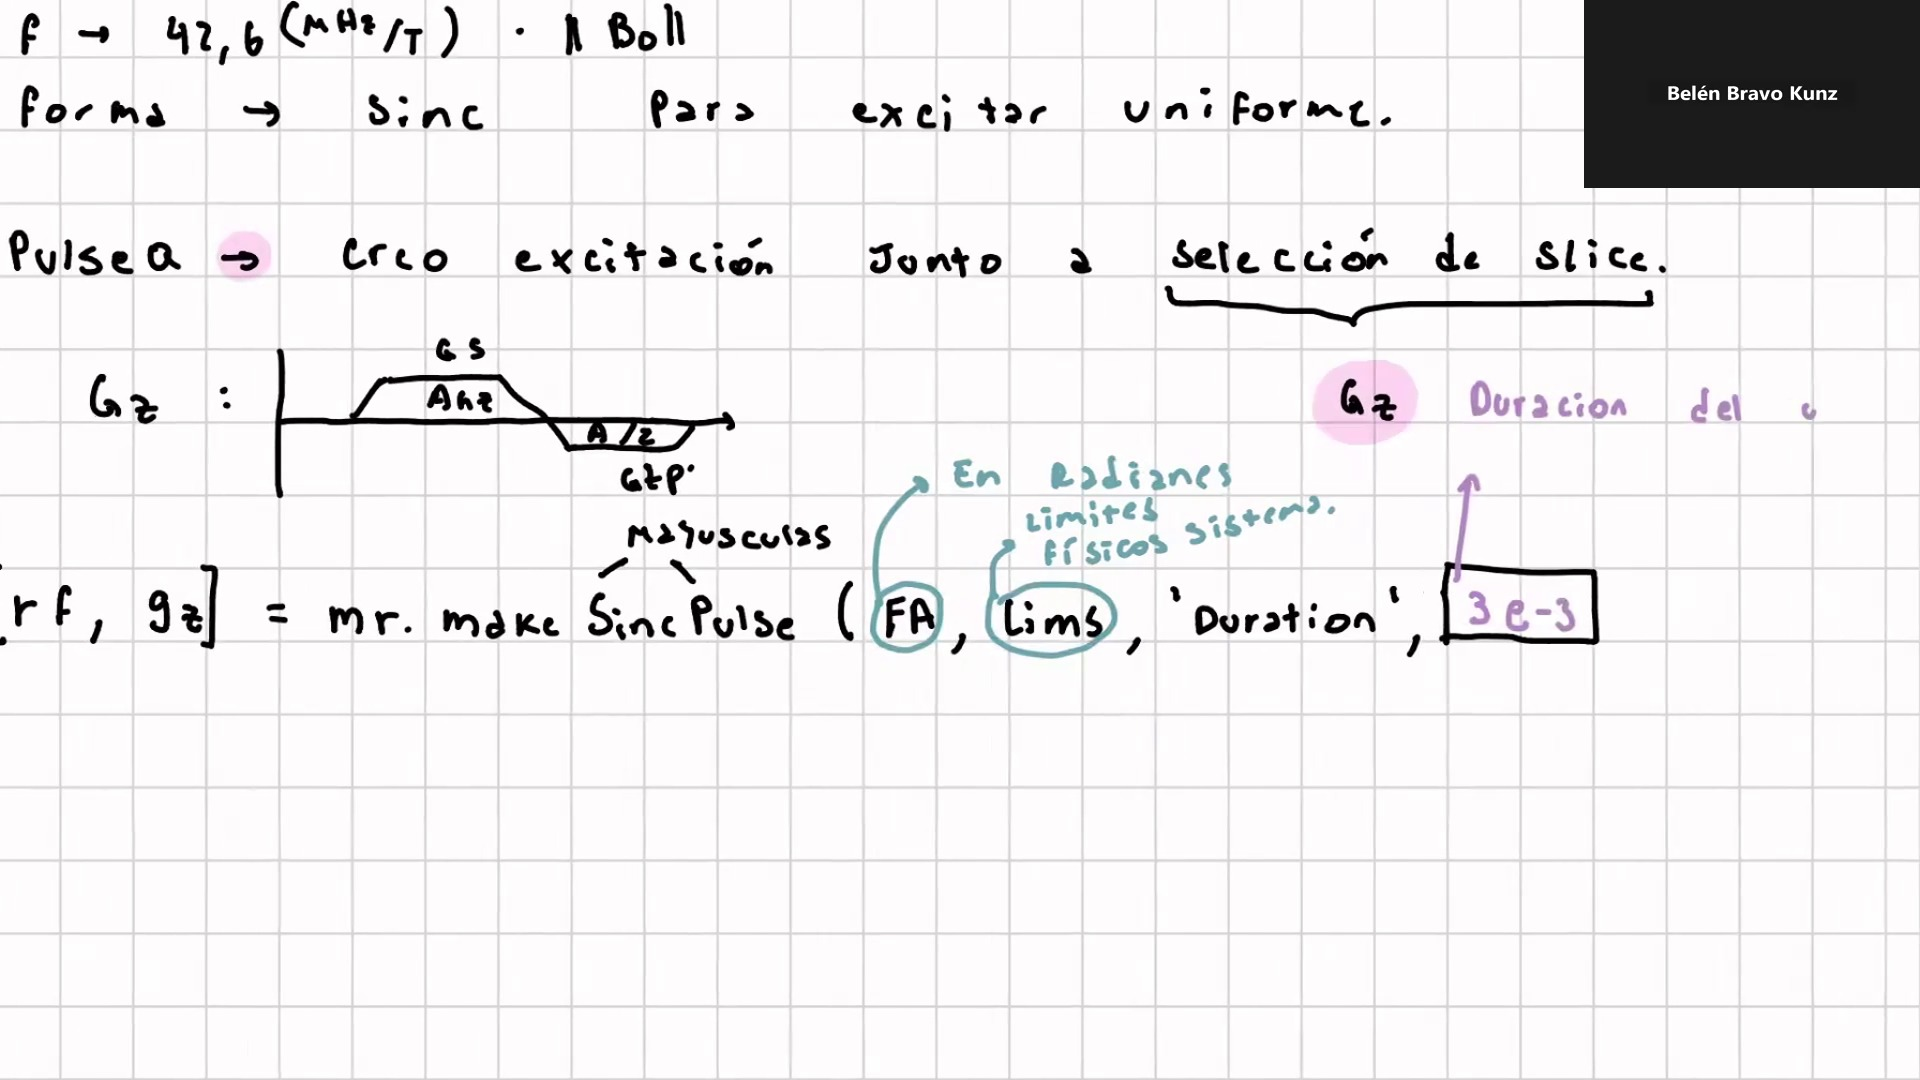 f → 42,6 (MHz/T) · || Bo||
Belén Bravo Kunz
forma → sinc para excitar uniforme.
PulseQ → creo excitación junto a selección de slice.
GS
Gz : AGz
Gz Duracion del
A/2
En Radianes
Limites físicos sistema.
Mayusculas
rf, gz] = mr. make SincPulse ( FA, Lims, 'Duration', 3e-3